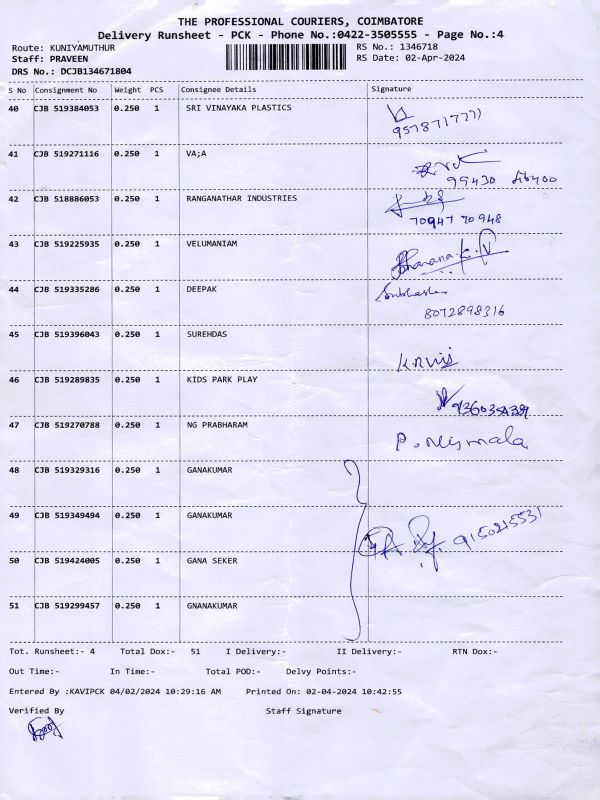 THE PROFESSIONAL COURIERS, COIMBATORE
Delivery Runsheet - PCK - Phone No.:0422-3505555 - Page No.:4
Route: KUNIYAMUTHUR RS No.: 1346718
Staff: PRAVEEN RS Date: 02-Apr-2024
DRS No.: DCJB134671804
S No Consignment No Weight PCS Consignee Details Signature
40 CJB 519384053 0.250 1 SRI VINAYAKA PLASTICS
41 CJB 519271116 0.250 1 VA;A
99430
42 CJB 518886053 0.250 1 RANGANATHAR INDUSTRIES
70947 70948
43 CJB 519225935 0.250 1 VELUMANIAM
44 CJB 519335286 0.250 1 DEEPAK
8072898316
45 CJB 519396043 0.250 1 SUREHDAS
46 CJB 519289835 0.250 1 KIDS PARK PLAY
47 CJB 519270788 0.250 1 NG PRABHARAM
P. Nirmala
48 CJB 519329316 0.250 1 GANAKUMAR
49 CJB 519349494 0.250 1 GANAKUMAR
50 CJB 519424005 0.250 1 GANA SEKER
51 CJB 519299457 0.250 1 GNANAKUMAR
Tot. Runsheet:- 4 Total Dox:- 51 I Delivery:- II Delivery:- RTN Dox:-
Out Time:- In Time:- Total POD:- Delvy Points:-
Entered By :KAVIPCK 04/02/2024 10:29:16 AM Printed On: 02-04-2024 10:42:55
Verified By Staff Signature